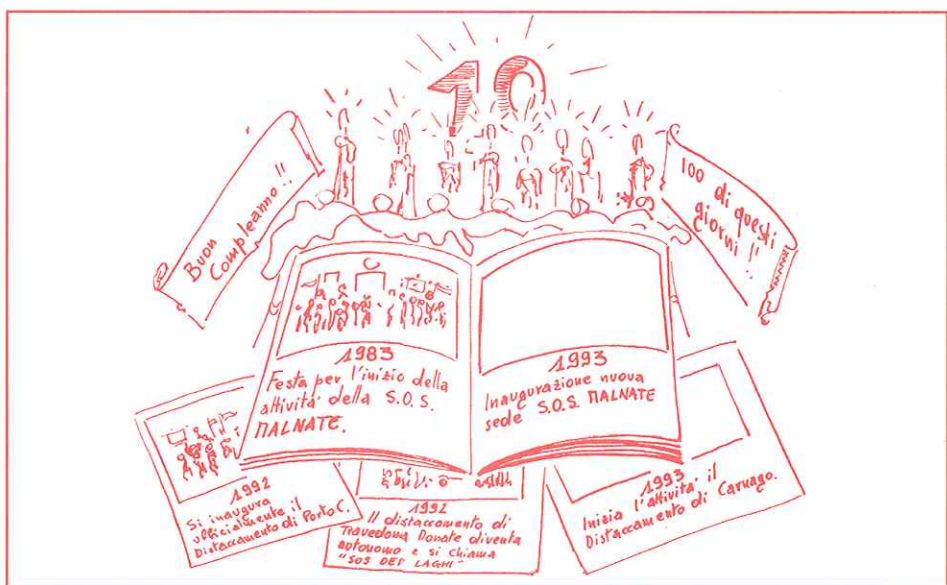 10
Buon
Compleanno!!
100 di questi
giorni!!
1983
Festa per l'inizio della
attività della S.O.S.
MALNATE.
1993
Inaugurazione nuova
sede S.O.S. MALNATE
1992
Si inaugura
ufficialmente il
Distaccamento di Porto C.
1992
Il distaccamento di
Travedona Monate diventa
autonomo e si chiama
"SOS DEI LAGHI"
1993
Inizia l'attività il
Distaccamento di Carnago.